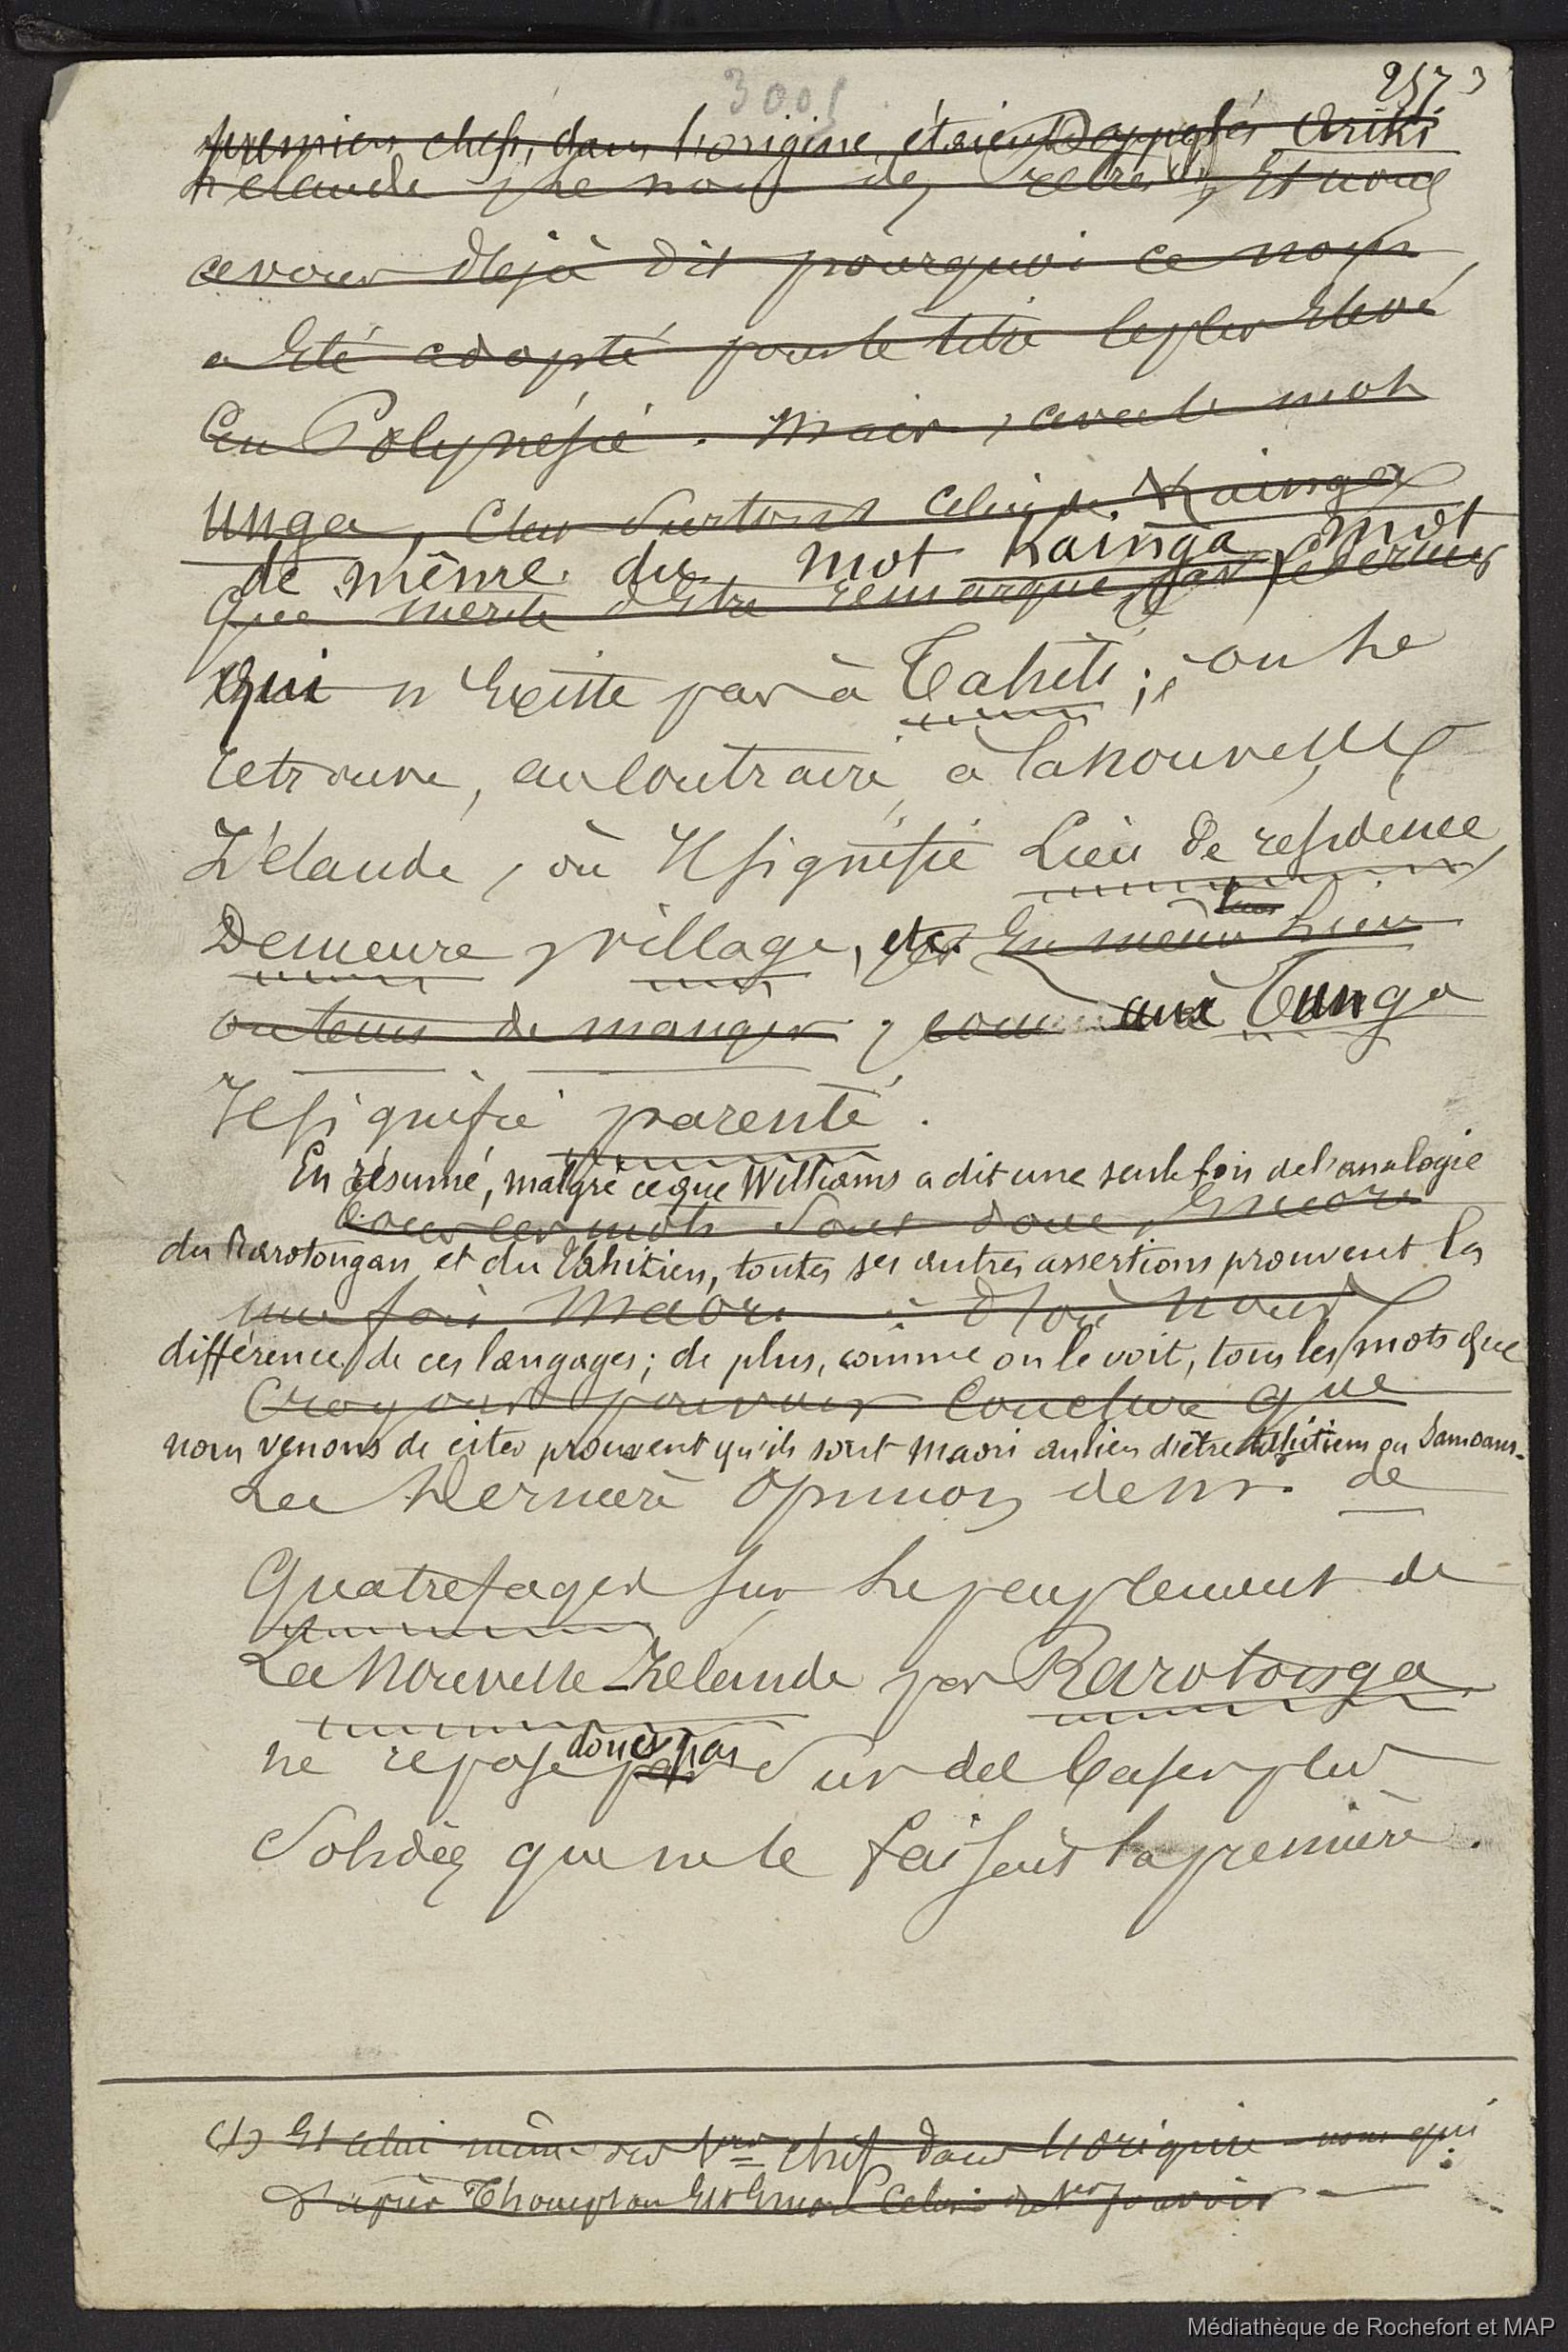 3001
2573
premiers chefs, dans l'origine, étaient appelés Ariki
Zélande le nom des Prêtres (1), Et nous
avons déjà dit pourquoi ce nom
a Eté adopté pour le titre le plus Elevé
En Polynésie. Mais, avec le mot
Unga, C'est surtout celui de Kainga
de même du mot Kainga, mot
qui mérite d'Etre remarqué, car ce dernier
qui n'Existe pas à Tahiti; on le
retrouve, au Contraire, à la Nouvelle
Zélande, où Il signifie Lieu de résidence,
Demeure, village, etc. En même lieu
ou tems de manger; aux Tunga
Il signifie parenté.
En résumé, malgré ce que Williams a dit une seule fois de l'analogie
Tous ces mots sont donc, Encore
du Rarotongan et du Tahitien, toutes ses autres assertions prouvent la
une fois Maori: D'où nous
différence de ces langages; de plus, comme on le voit, tous les mots que
Croyons pouvoir Conclure que
nous venons de citer prouvent qu'ils sont Maori au lieu d'être tahitiens ou Samoans.
La dernière Opinion de Mr. de
Quatrefages sur le peuplement de
La Nouvelle-Zélande par Rarotonga
ne repose donc pas sur des bases plus
Solides que ne le faisait la première.
(1) Et celui même des 1ers chefs dans l'origine nom qui
D'après Thompson Est Encore Celui de 1er pouvoir
Médiathèque de Rochefort et MAP